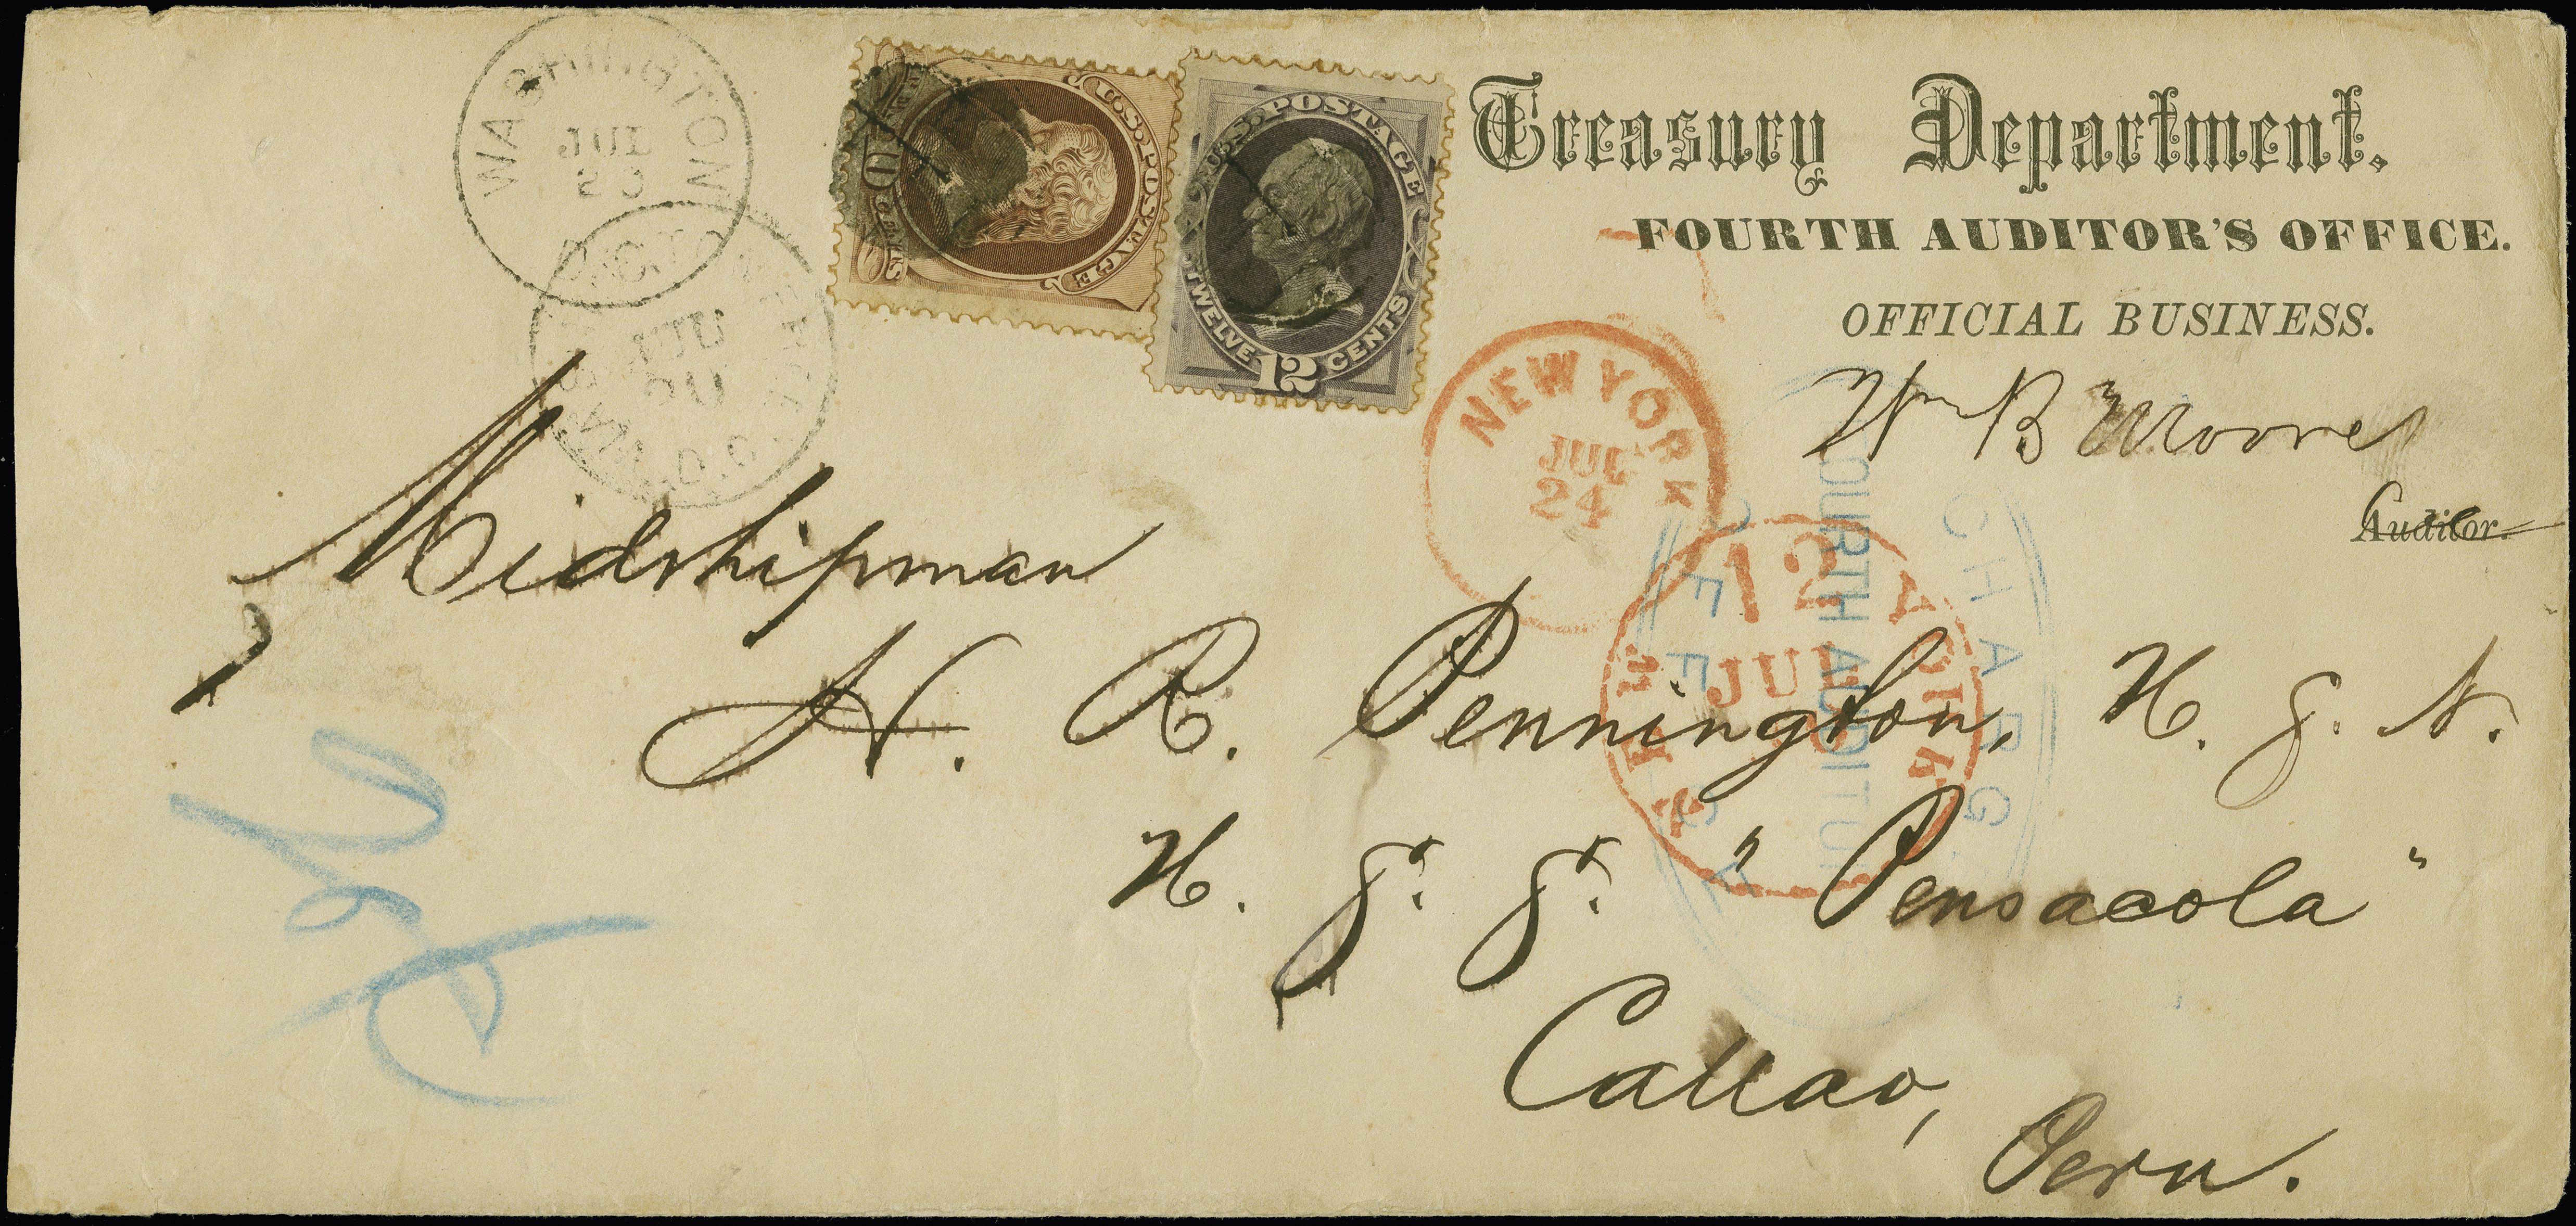 Treasury Department.
FOURTH AUDITOR'S OFFICE.
OFFICIAL BUSINESS.
Wm B Moore
Auditor.
WASHINGTON
JUL
20
D.C.
JUL
20
D.C.
U.S. POSTAGE
CENTS
U.S. POSTAGE
TWELVE 12 CENTS
NEW YORK
JUL
24
NEW YORK
12
JUL
FOURTH AUDITOR
Midshipman
H. R. Pennington, U. S. N.
U. S. S. "Pensacola"
Callao,
Peru.